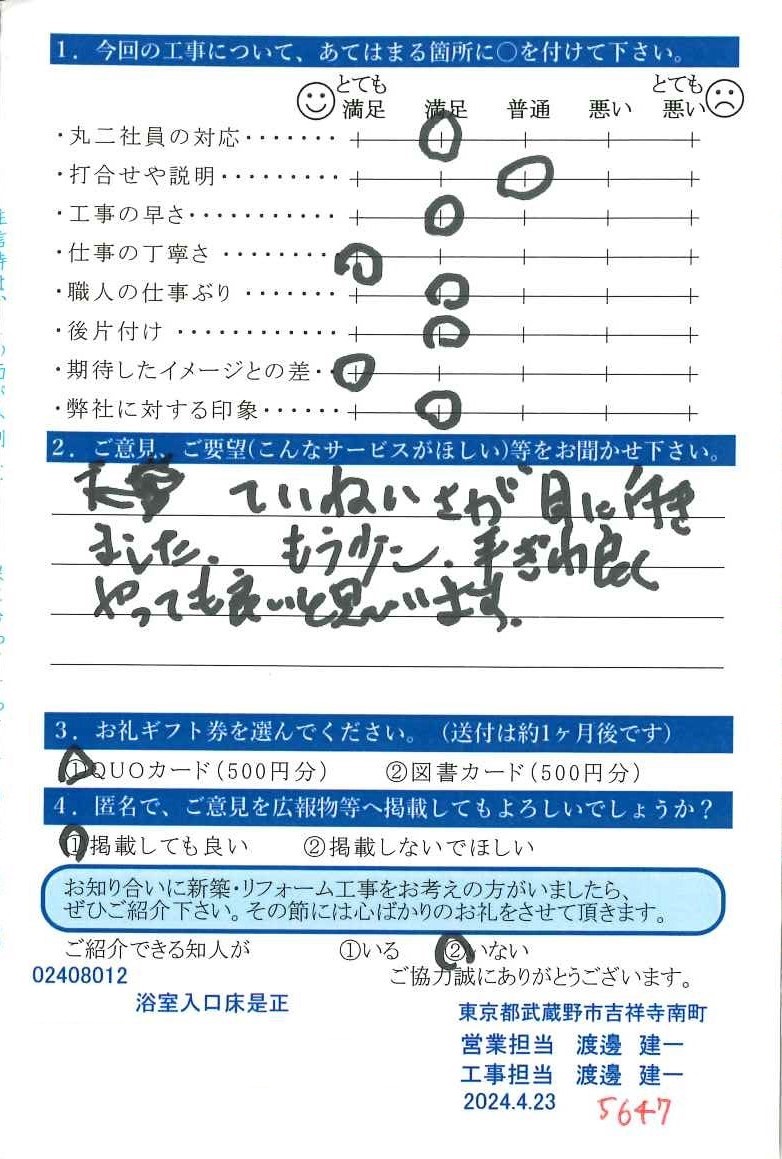 1．今回の工事について、あてはまる箇所に○を付けて下さい。
とても満足 満足 普通 悪い とても悪い
・丸二社員の対応・・・・・・・
・打合せや説明・・・・・・・・・
・工事の早さ・・・・・・・・・・・
・仕事の丁寧さ ・・・・・・・・
・職人の仕事ぶり ・・・・・・・
・後片付け ・・・・・・・・・・・・
・期待したイメージとの差・・
・弊社に対する印象・・・・・・
2．ご意見、ご要望(こんなサービスがほしい)等をお聞かせ下さい。
ていねいさが目に付き
ました。もう少し、手ぎわ良く
やっても良いと思います。
3．お礼ギフト券を選んでください。（送付は約1ヶ月後です）
①QUOカード(500円分) ②図書カード(500円分)
4．匿名で、ご意見を広報物等へ掲載してもよろしいでしょうか？
①掲載しても良い ②掲載しないでほしい
お知り合いに新築・リフォーム工事をお考えの方がいましたら、
ぜひご紹介下さい。その節には心ばかりのお礼をさせて頂きます。
ご紹介できる知人が ①いる ②いない
02408012 ご協力誠にありがとうございます。
浴室入口床是正
東京都武蔵野市吉祥寺南町
営業担当 渡邊 建一
工事担当 渡邊 建一
2024.4.23 5647